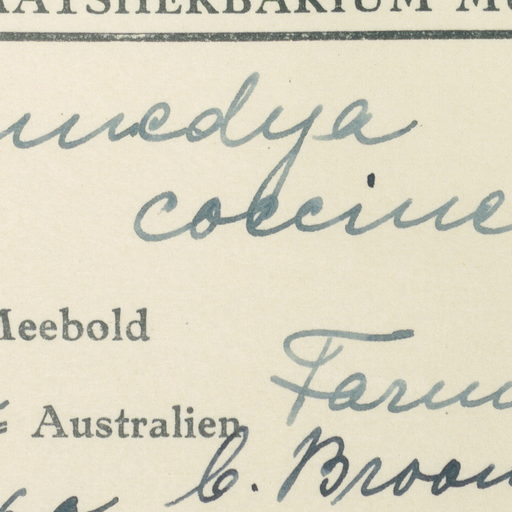 AATSHERBARIUM M
nnedya
coccine
Meebold
Farm
Australien
C. Broom